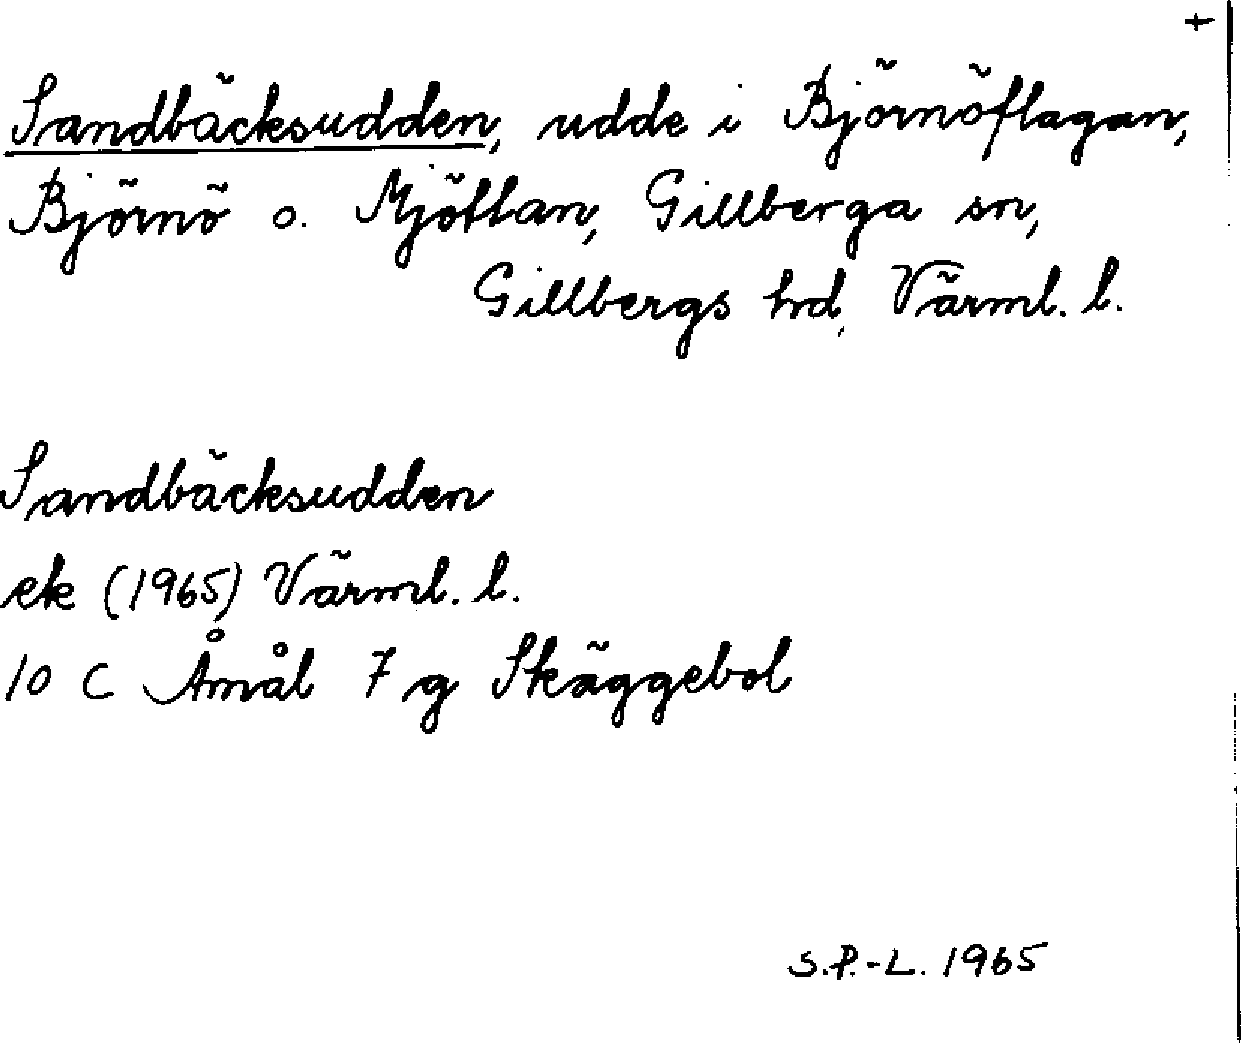 +
Sandbäcksudden, udde i Björnöflagan,
Björnö o. Mjöttan, Gillberga sn,
Gillbergs hd, Värml. l.
Sandbäcksudden
ek (1965) Värml. l.
10 C Åmål 7 g Skäggebol
S.P.-L. 1965